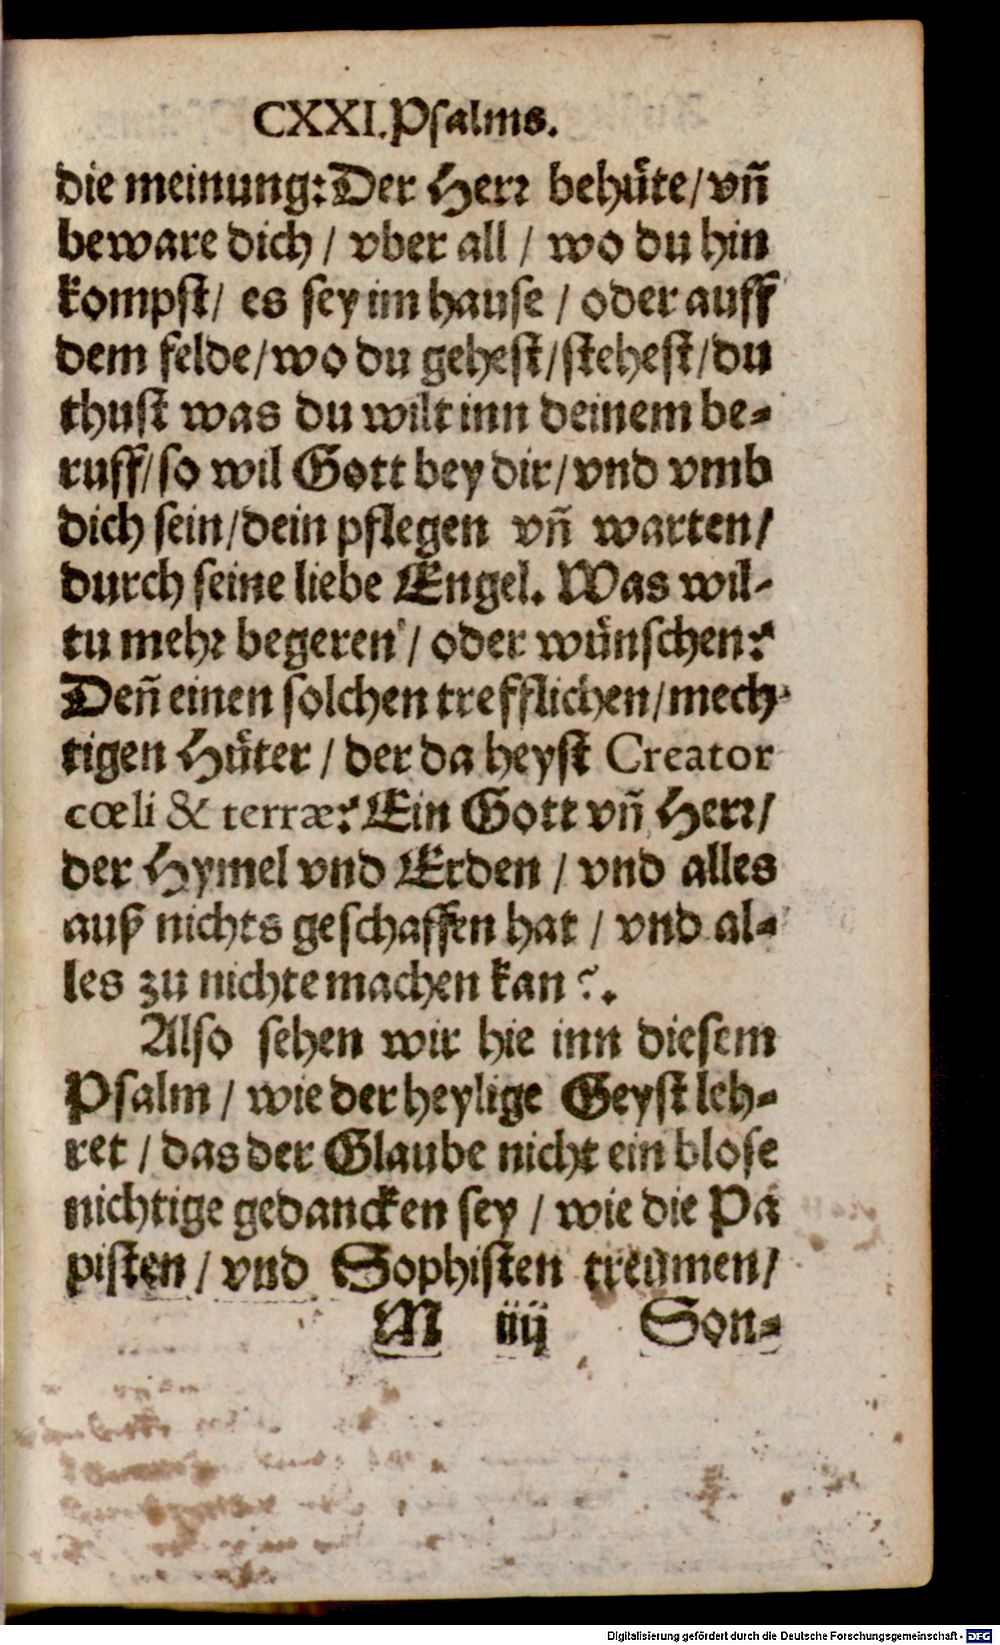 CXXI. Psalms.
die meinung: Der Herr behüte/ vñ
beware dich / vber all / wo du hin
kompst/ es sey im hause / oder auff
dem felde/ wo du gehest/ stehest/ du
thust was du wilt inn deinem be-
ruff/ so wil Gott bey dir/ vnd vmb
dich sein/ dein pflegen vñ warten/
durch seine liebe Engel. Was wil-
tu mehr begeren / oder wünschen?
Deñ einen solchen trefflichen/ mech-
tigen Hüter / der da heyst Creator
cœli & terræ? Ein Gott vñ Herr/
der Hymel vnd Erden / vnd alles
auß nichts geschaffen hat / vnd al-
les zu nichte machen kan ?.
Also sehen wir hie inn diesem
Psalm / wie der heylige Geyst leh-
ret / das der Glaube nicht ein blose
nichtige gedancken sey / wie die Pa
pisten / vnd Sophisten treumen/
M iiij Son-
Digitalisierung gefördert durch die Deutsche Forschungsgemeinschaft - DFG